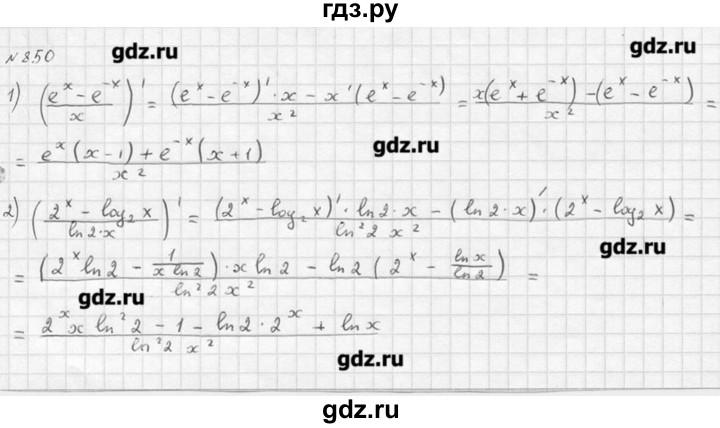 гдз.ру
№850
gdz.ru
gdz.ru
1) ((e^x - e^-x)/x)' = ((e^x - e^-x)' · x - x'(e^x - e^-x))/x^2 = (x(e^x + e^-x) - (e^x - e^-x))/x^2 =
= (e^x(x-1) + e^-x(x+1))/x^2
gdz.ru
2) ((2^x - log_2 x)/(ln2·x))' = ((2^x - log_2 x)' · ln2·x - (ln2·x)' · (2^x - log_2 x))/(ln^2 2 x^2) =
gdz.ru
= ((2^x ln2 - 1/(x ln2)) · x ln2 - ln2 (2^x - lnx/ln2))/(ln^2 2 x^2) =
gdz.ru
= (2^x x ln^2 2 - 1 - ln2 · 2^x + lnx)/(ln^2 2 x^2)
gdz.ru
gdz.ru